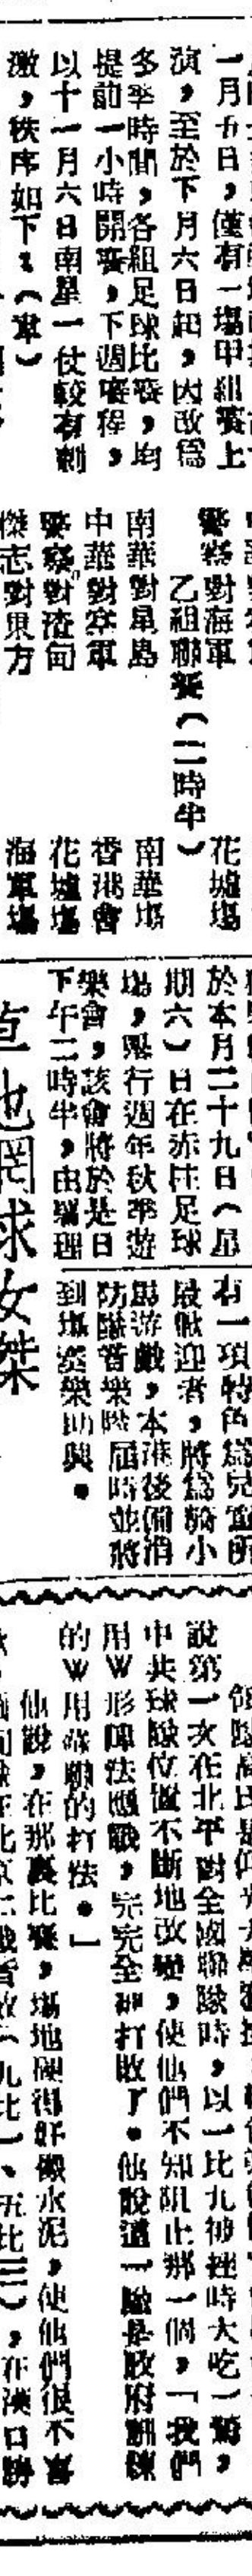 一月五日，僅有一塲甲組賽上
演，至於下月六日起，因改爲
多季時間，各組足球比賽，均
提前一小時開賽，下週賽程，
以十一月六日南星一仗較有刺
激，秩序如下：（軍）
警察對海軍　花墟塲
乙組聯賽（二時半）
南華對星島　南華塲
中華對空軍　香港會
警察對渣甸　花墟塲
傑志對東方　海軍塲
於本月二十九日（星
期六）日在赤柱足球
塲，舉行週年秋季遊
樂會，該會將於是日
下午二時半，由
有一項特色爲兒童所
最歡迎者，將爲騎小
馬游戲，本港後備消
防隊音樂隊屆時並將
到塲奏樂助興。
草地網球女傑
說第一次在北平對全國聯隊時，以一比九被挫時大吃一驚，
中共球隊位置不斷地改變，使他們不知阻止那一個，「我們
用W形陣法應戰，完完全全却打敗了。他說這一隊是政府訓練
的W用　　的打法。」
他說，在那裏比賽，塲地硬得好像水泥，使他們很不
（九比一、五比三），在漢口勝